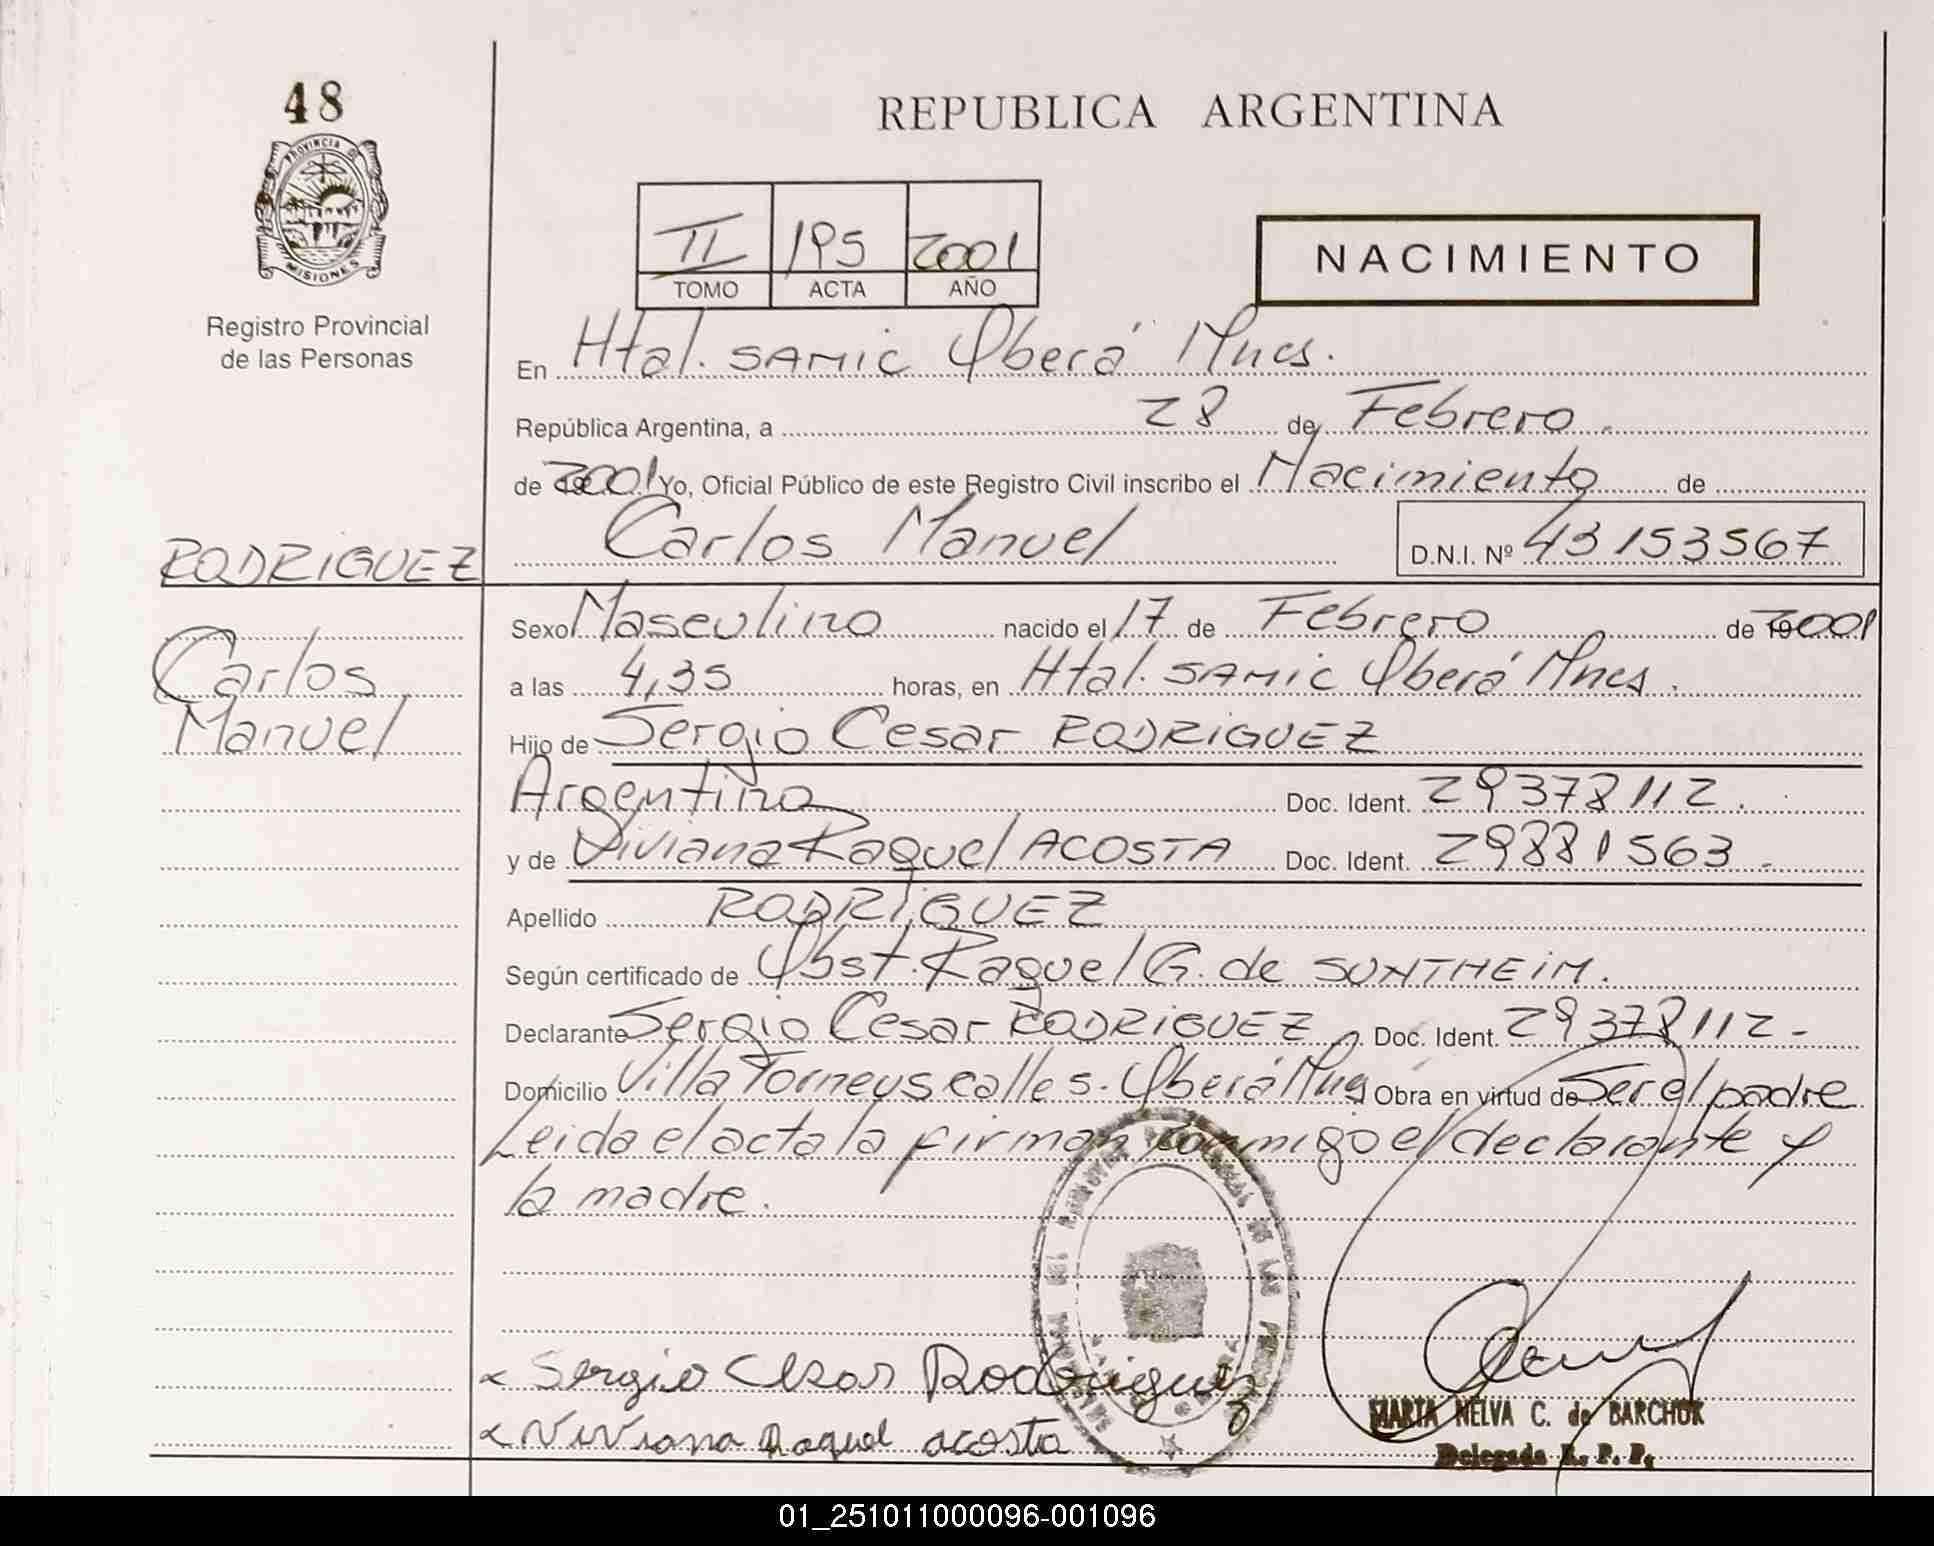 48
PROVINCIA DE
MISIONES
Registro Provincial
de las Personas
REPUBLICA ARGENTINA
II 195 2001
TOMO ACTA AÑO
NACIMIENTO
En Htal. SAMIC Oberá Mnes.
República Argentina, a 28 de Febrero.
de 2001 Yo, Oficial Público de este Registro Civil inscribo el Nacimiento de
Carlos Manuel D.N.I. Nº 43153567
RODRIGUEZ
Carlos
Manuel
Sexo Masculino nacido el 17 de Febrero de 2001
a las 4,35 horas, en Htal. SAMIC Oberá Mnes.
Hijo de Sergio Cesar RODRIGUEZ
Argentina Doc. Ident. 29378112.
y de Viviana Raquel ACOSTA Doc. Ident. 29881563.
Apellido RODRIGUEZ
Según certificado de Obst. Raquel G. de SUNTHEIM.
Declarante Sergio Cesar RODRIGUEZ. Doc. Ident. 29378112-
Domicilio Villa calle s. Oberá Mnes Obra en virtud de Ser el padre
Leida el acta la firman conmigo el declarante y
la madre.
Sergio Cesar Rodriguez
Viviana Raquel acosta
MARTA NELVA C. de BARCHUK
Delegada R. P. P.
01_251011000096-001096